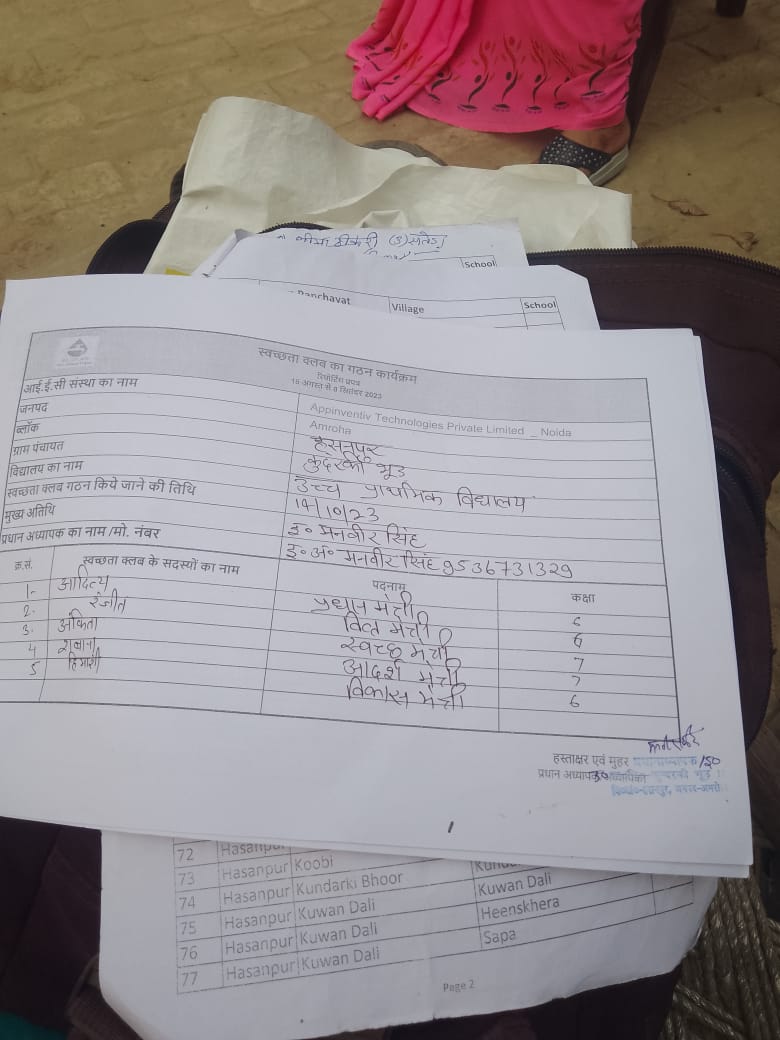 School
Panchayat Village School
स्वच्छता क्लब का गठन कार्यक्रम
रिपोर्टिंग प्रपत्र
आई.ई.सी संस्था का नाम Appinventiv Technologies Private Limited _ Noida
जनपद Amroha
ब्लॉक हसनपुर
ग्राम पंचायत कुंदरकी भूड
विद्यालय का नाम उच्च प्राथमिक विद्यालय
स्वच्छता क्लब गठन किये जाने की तिथि 14/10/23
मुख्य अतिथि इ० मनवीर सिंह
प्रधान अध्यापक का नाम /मो. नंबर इ० अ० मनवीर सिंह 9536731329
क्र.सं. स्वच्छता क्लब के सदस्यों का नाम पदनाम कक्षा
1- आदित्य प्रधान मंत्री 6
2- रंजीत वित्त मंत्री 6
3- अंकिता स्वच्छ मंत्री 7
4 आदर्श मंत्री 7
5 हिमांशी विकास मंत्री 6
हस्ताक्षर एवं मुहर
प्रधान अध्यापक
72 Hasanpur
73 Hasanpur Koobi
74 Hasanpur Kundarki Bhoor
75 Hasanpur Kuwan Dali Kuwan Dali
76 Hasanpur Kuwan Dali Heenskhera
77 Hasanpur Kuwan Dali Sapa
Page 2